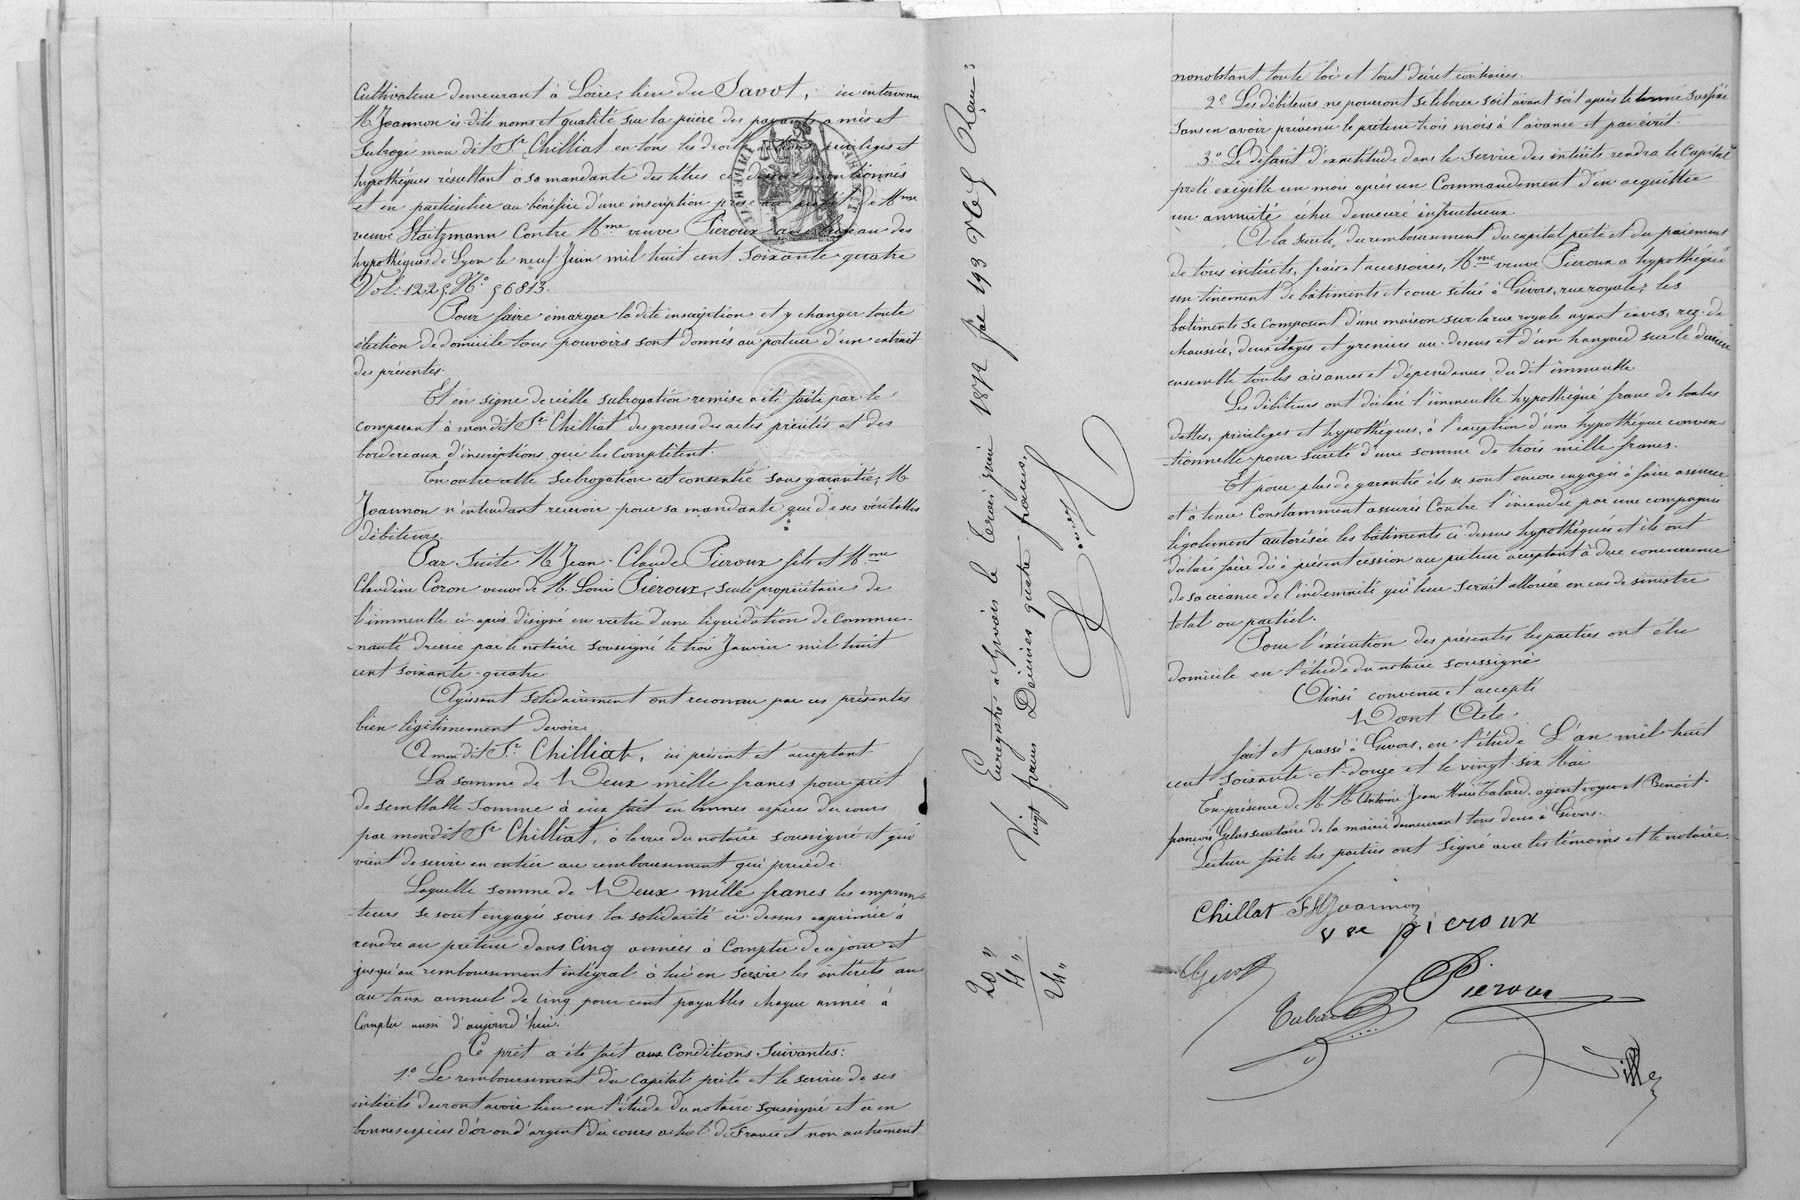 Cultivateur demeurant à Loire, lieu du Savot, ici intervenu
M. Joannon ès-dits noms et qualité sur la prière des payants a mis et
subrogé mon dit Sr Chilliat en tous les droits, actions, privilèges et
hypothèques résultant à sa mandante des titres ci-dessus mentionnés
et en particulier au bénéfice d'une inscription prise au profit de Mme
veuve Staitzmann contre Mme veuve Pieroux au bureau des
hypothèques de Lyon le neuf Juin mil huit cent soixante-quatre
Vol. 1225 No 56813.
Pour faire émarger la dite inscription et y changer toute
élection de domicile tous pouvoirs sont donnés au porteur d'un extrait
des présentes.
Et en signe de cette subrogation remise a été faite par le
comparant à mon dit Sr Chilliat des grosses des actes précités et des
bordereaux d'inscriptions que les complètent.
En outre cette subrogation est consentie sans garantie, M.
Joannon n'entendant recevoir pour sa mandante que de ses véritables
débiteurs.
Par suite M. Jean-Claude Pieroux fils et Mme
Claudine Coron veuve de M. Louis Pieroux, seule propriétaire de
l'immeuble ci-après désigné en vertu d'une liquidation de commu-
nauté dressée par le notaire soussigné le trois Janvier mil huit
cent soixante-quatre
Agissant solidairement ont reconnu par ces présentes
bien légitimement devoir
A mon dit Sr Chilliat, ici présent et acceptant
La somme de Deux mille francs pour prêt
de semblable somme à eux fait en bonnes espèces du cours
par mondit Sr Chilliat, à la vue du notaire soussigné et qui
vient de servir en entier au remboursement qui précède.
Laquelle somme de Deux mille francs les emprun-
teurs se sont engagés sous la solidarité ci-dessus exprimée à
rendre au prêteur dans Cinq années à compter de ce jour et
jusqu'au remboursement intégral à lui en servir les intérêts au
au taux annuel de cinq pour cent payables chaque année à
compter aussi d'aujourd'hui.
Ce prêt a été fait aux Conditions suivantes:
1o Le remboursement du capital prêté et le service de ses
intérêts devront avoir lieu en l'étude du notaire soussigné et à en
bonnes espèces d'or ou d'argent du cours actuel de France et non autrement
Enregistré à Givors le trois juin 1872 fol 193 Vo C5 Reçu:
Vingt francs Décimes quatre francs.
20 "
4 "
24 "
nonobstant toute loi et tout décret contraires.
2o Les débiteurs ne pourront se libérer soit avant soit après le terme suspixé
sans en avoir prévenu le prêteur trois mois à l'avance et par écrit.
3o Le défaut d'exactitude dans le service des intérêts rendra le Capital
prêté exigible un mois après un Commandement d'en acquitter
un annuité échu demeuré infructueux.
A la sureté du remboursement du capital prêté et du paiement
de tous intérêts, frais et accessoires, Mme veuve Pieroux a hypothéqué
un tènement de bâtiments et cour situé à Givors, rue royale; les
bâtiments se composent d'une maison sur la rue royale ayant caves, rez-de
chaussée, deux étages et greniers au-dessus et d'un hangard sur le derrière
ensemble toutes aisances et dépendances du dit immeuble.
Les débiteurs ont déclaré l'immeuble hypothéqué franc de toutes
dettes, privilèges et hypothèques, à l'exception d'une hypothèque conven
tionnelle pour sureté d'une somme de trois mille francs.
Et pour plus de garantie ils se sont encore engagés à faire assurer
et à tenir constamment assurés contre l'incendie par une compagnie
légalement autorisée les bâtiments ci-dessus hypothéqués et ils ont
déclaré faire dès à présent cession au prêteur acceptant à due concurrence
de sa créance de l'indemnité qui leur serait allouée en cas de sinistre
total ou partiel.
Pour l'exécution des présentes les parties ont élu
domicile en l'étude du notaire soussigné
Ainsi convenu et accepté
Dont Acte
fait et passé à Givors, en l'étude L'an mil huit
cent soixante-et-douze et le vingt-six Mai
En présence de M.M. Antoine Jean Marie Tabard, agent voyer et Benoit-
françois Gelas secrétaire de la mairie demeurant tous deux à Givors.
Lecture faite les parties ont signé avec les témoins et le notaire.
Chillat Joannon
Vve pieroux
Pieroux
Tabard